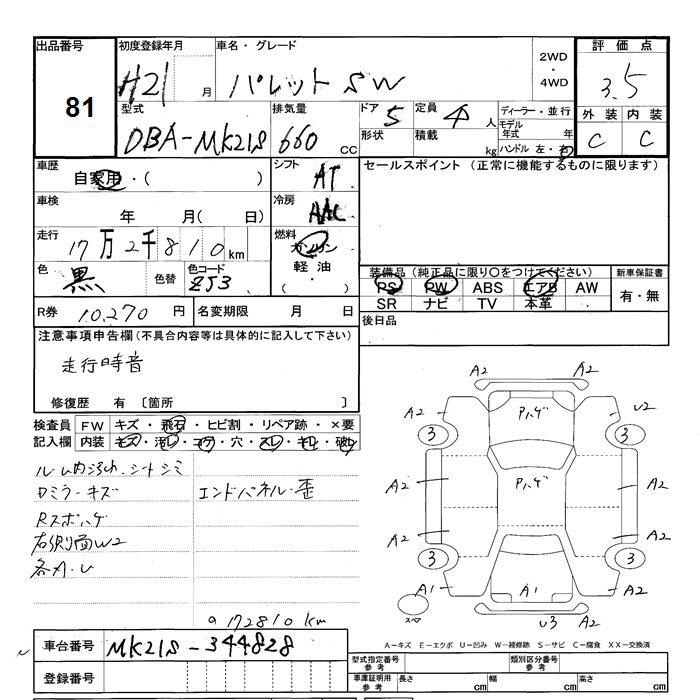 出品番号
81
初度登録年月
H21 月
車名・グレード
パレット SW
2WD
・
4WD
評価点
3.5
外装 内装
C C
型式
DBA-MK21S
排気量
660 CC
ドア 5
定員 4 人
形状
積載 kg
ディーラー・並行
モデル年式 年
ハンドル 左・右
車歴
自家用・( )
シフト
AT
セールスポイント (正常に機能するものに限ります)
車検
年 月( 日)
冷房
AAC
走行
17万2千810km
燃料
ガソリン
軽油
( ・ )
色
黒
色替
色コード
ZJ3
装備品 (純正品に限り○をつけてください)
PS PW ABS エアB AW
SR ナビ TV 本革
新車保証書
有・無
R券 10,270 円
名変期限 月 日
後日品
注意事項申告欄 (不具合内容等は具体的に記入して下さい)
走行時音
修復歴 有 〔箇所 〕
検査員記入欄
FW キズ・飛石・ヒビ割・リペア跡・×要
内装 キズ・汚レ・コゲ・穴・スレ・キレ・破レ
ルーム内汚れ、シートシミ
Rスポハゲ
エンドパネル歪
右側面W2
各A.U
172810km
A2 A2
A2 U2
Pハゲ
3 3
A2 A2
Pハゲ
A2 A2
3 3
A1 A1 A2
スペア
U3 A2
A-キズ E-エクボ U-凹み W-補修跡 S-サビ C-腐食 XX-交換済
車台番号
MK21S-344828
登録番号
型式指定番号
参考
類別区分番号
参考
車庫証明用
参考
長さ cm
幅 cm
高さ cm